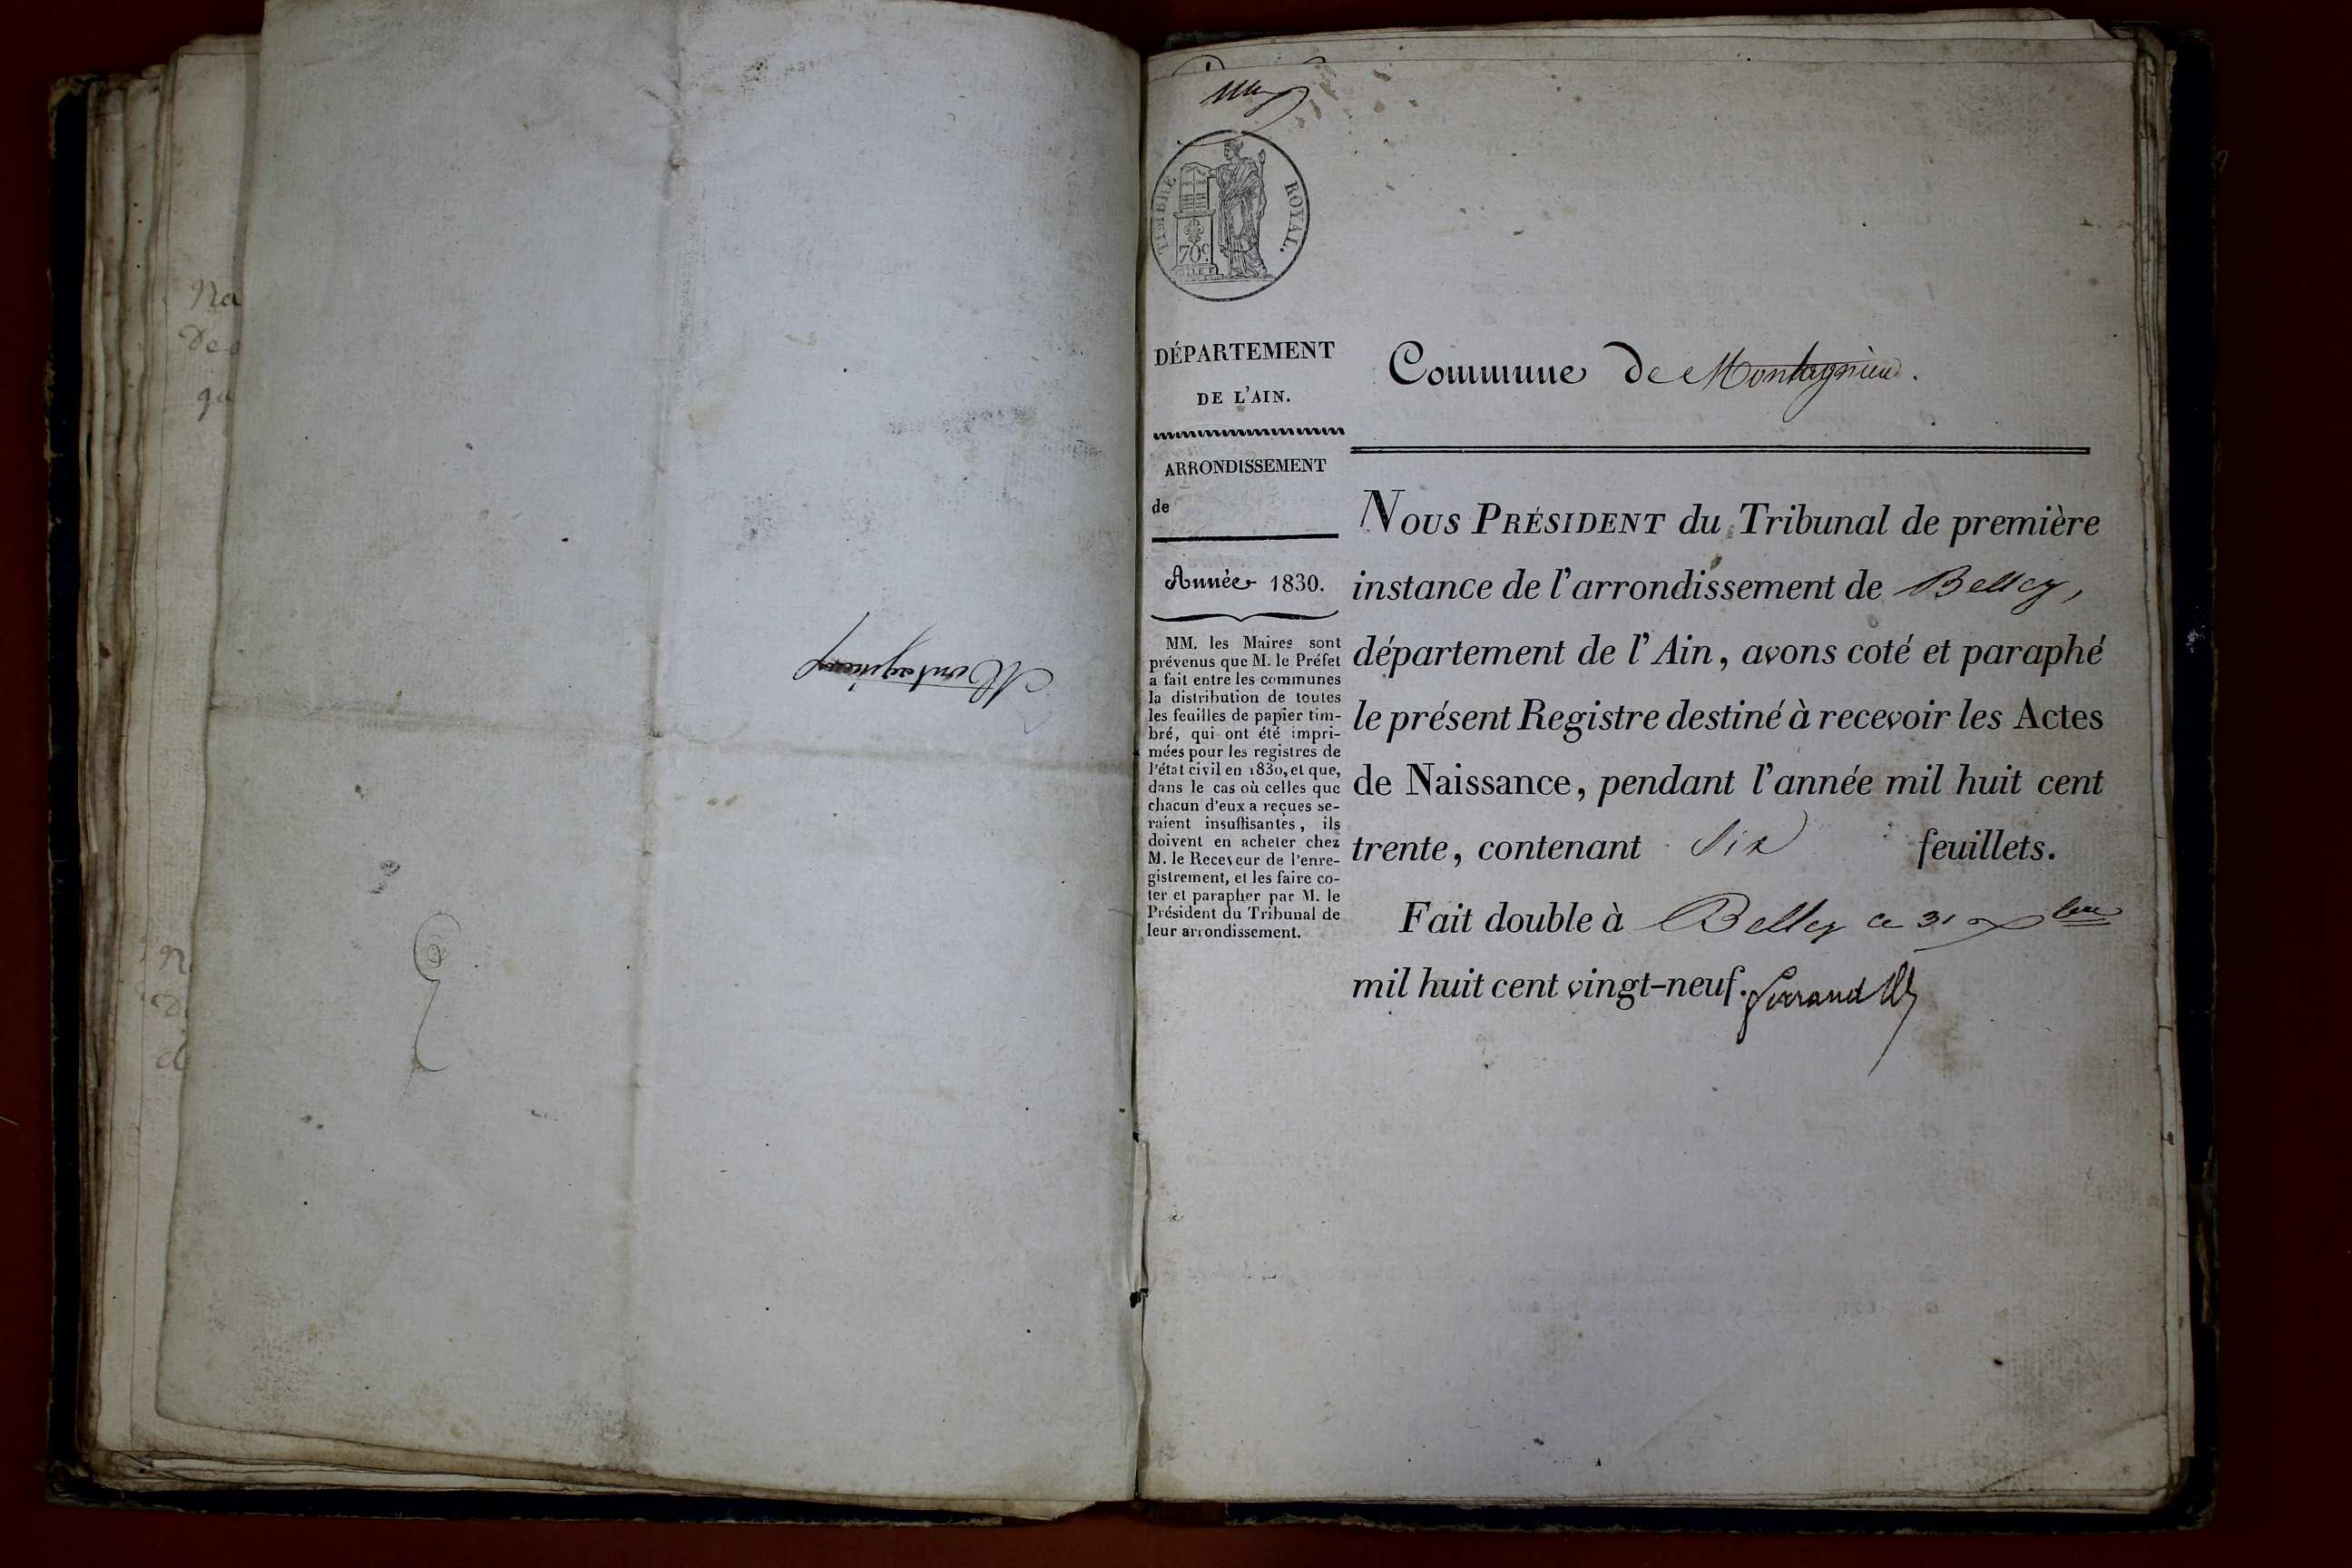 Na
De
qu
Montagnieu
TIMBRE ROYAL.
70c.
DÉPARTEMENT
DE L'AIN.
ARRONDISSEMENT
de
Année 1830.
MM. les Maires sont
prévenus que M. le Préfet
a fait entre les communes
la distribution de toutes
les feuilles de papier tim-
bré, qui ont été impri-
mées pour les registres de
l'état civil en 1830, et que,
dans le cas où celles que
chacun d'eux a reçues se-
raient insuffisantes, ils
doivent en acheter chez
M. le Receveur de l'enre-
gistrement, et les faire co-
ter et parapher par M. le
Président du Tribunal de
leur arrondissement.
Commune de Montagnieu.
NOUS PRÉSIDENT du Tribunal de première
instance de l'arrondissement de Belley,
département de l'Ain, avons coté et paraphé
le présent Registre destiné à recevoir les Actes
de Naissance, pendant l'année mil huit cent
trente, contenant six feuillets.
Fait double à Belley ce 31 Xbre
mil huit cent vingt-neuf.